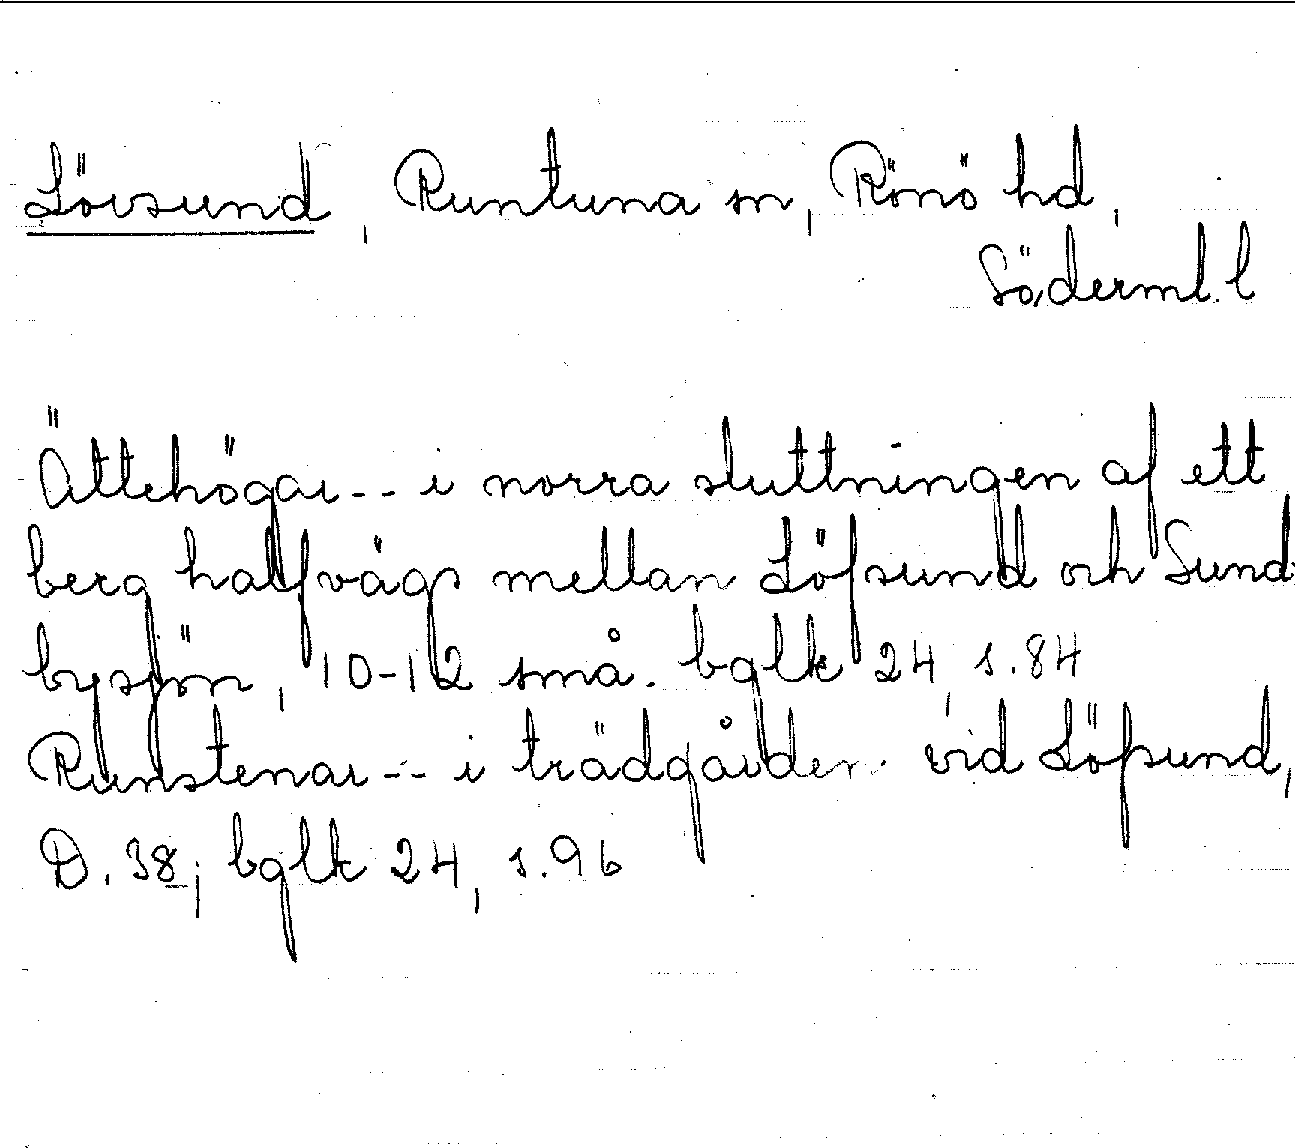 Lövsund, Runtuna sn, Rönö hd,
Söderml. l
Ättehögar -- i norra sluttningen af ett
berg halfvägs mellan Löfsund och Sund-
bysjön, 10-12 små. bglk 24, s. 84
Runstenar -- i trädgården vid Löfsund,
D. 38; bglk 24, s. 96